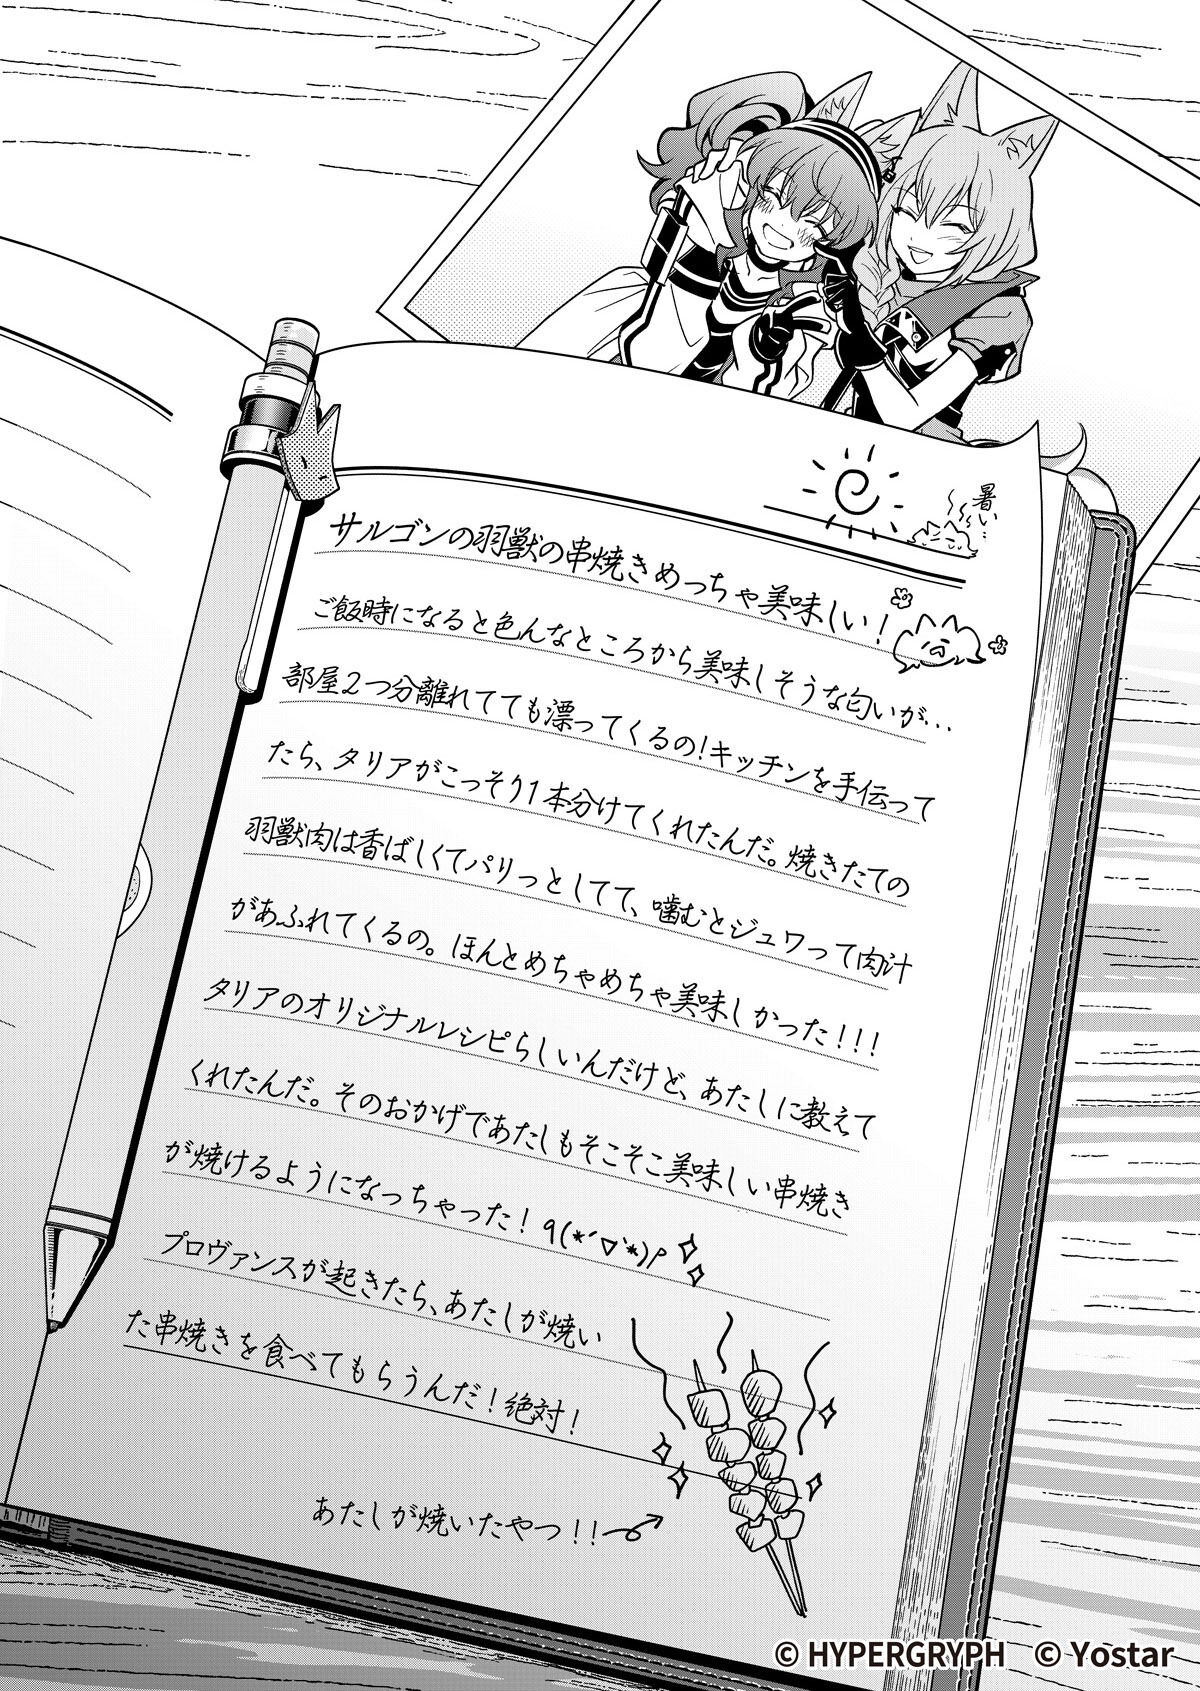 暑い…
サルゴンの羽獣の串焼きめっちゃ美味しい！
ご飯時になると色んなところから美味しそうな匂いが…
部屋2つ分離れてても漂ってくるの！キッチンを手伝って
たら、タリアがこっそり1本分けてくれたんだ。焼きたての
羽獣肉は香ばしくてパリっとしてて、噛むとジュワって肉汁
があふれてくるの。ほんとめちゃめちゃ美味しかった！！！
タリアのオリジナルレシピらしいんだけど、あたしに教えて
くれたんだ。そのおかげであたしもそこそこ美味しい串焼き
が焼けるようになっちゃった！９(*´▽`*)۶
プロヴァンスが起きたら、あたしが焼い
た串焼きを食べてもらうんだ！絶対！
あたしが焼いたやつ！！
© HYPERGRYPH © Yostar